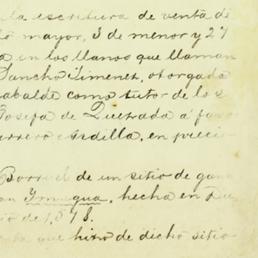 la escritura de venta de
mayor, 3 de menor y 27
en los llanos que llaman
Sancho Jimenez, otorgada
como tutor de los
Josefa de Quezada á favor
en precio
Borrador de un sitio de gana
hecha en
de 1878.
que hizo de dicho sitio